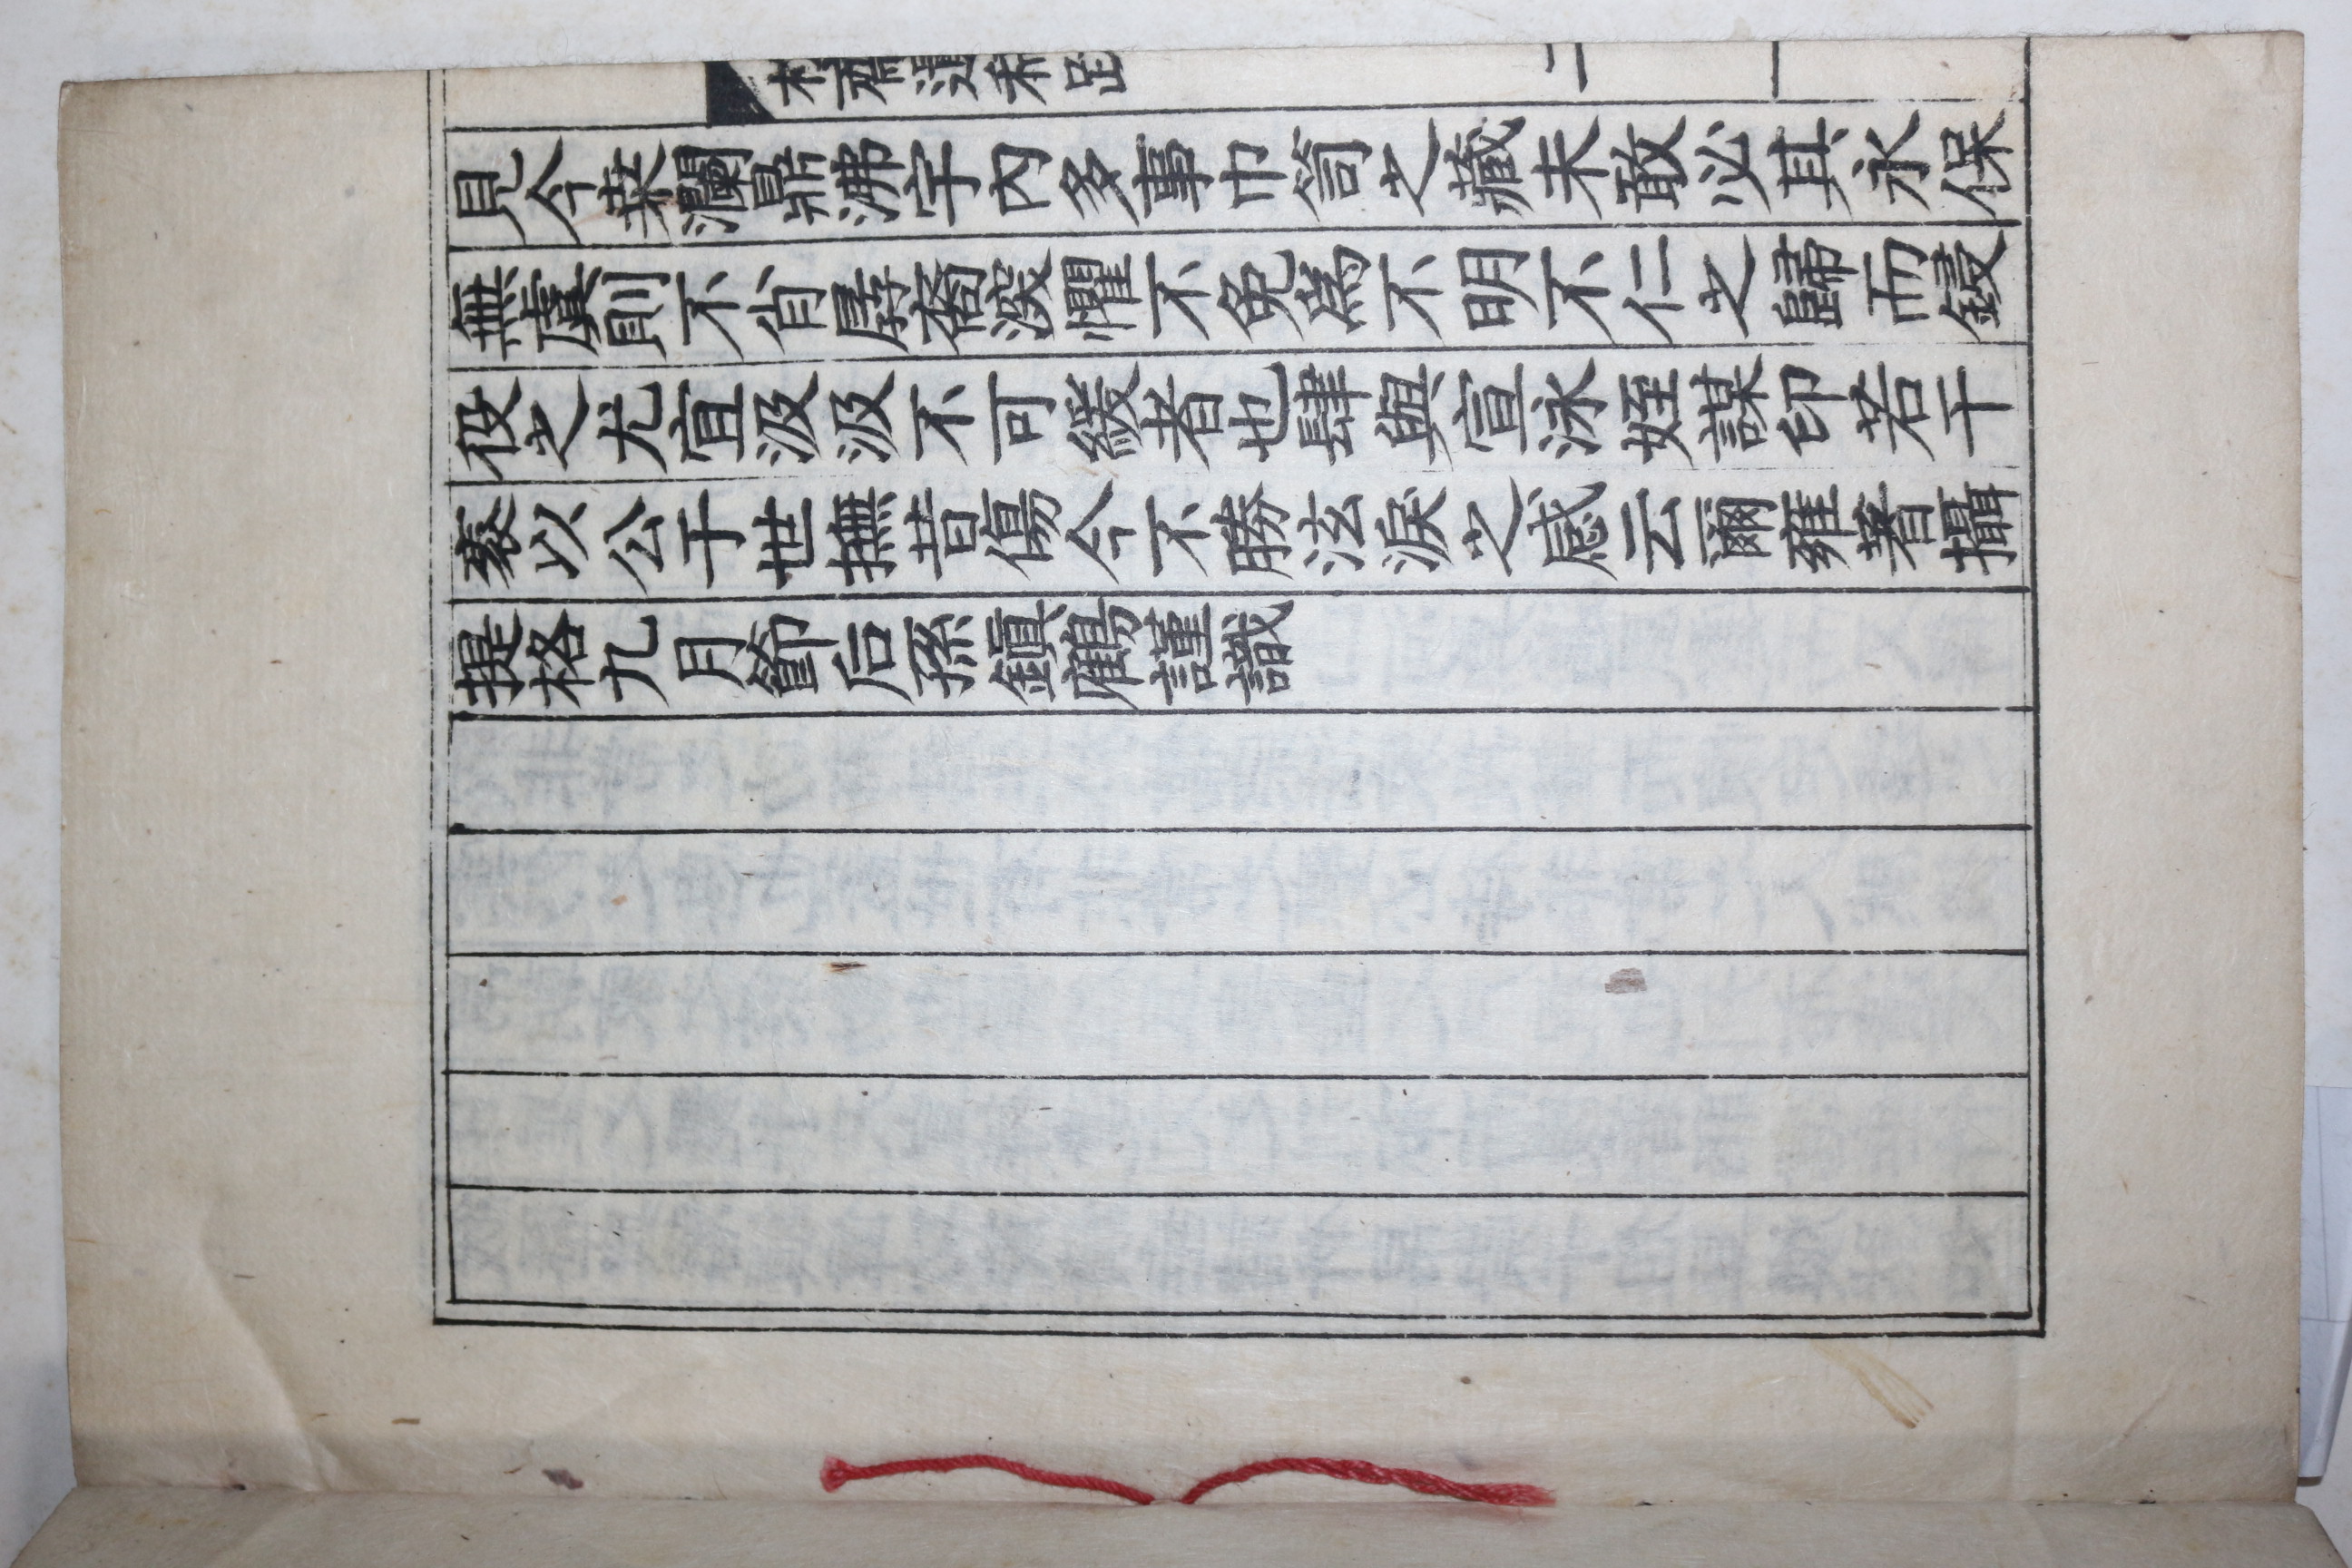 見今桒瀾鼎沸宇內多事巾笥之藏未敢必其永保
無虞則不肖孱裔澟懼不免爲不明不仁之歸而鋟
役之尤宜汲汲不可緩者也肆與宣泳姪謀印若干
袠以公于世撫昔傷今不勝泫淚之感云爾雍著攝
提格九月節后孫鎭鶴謹識